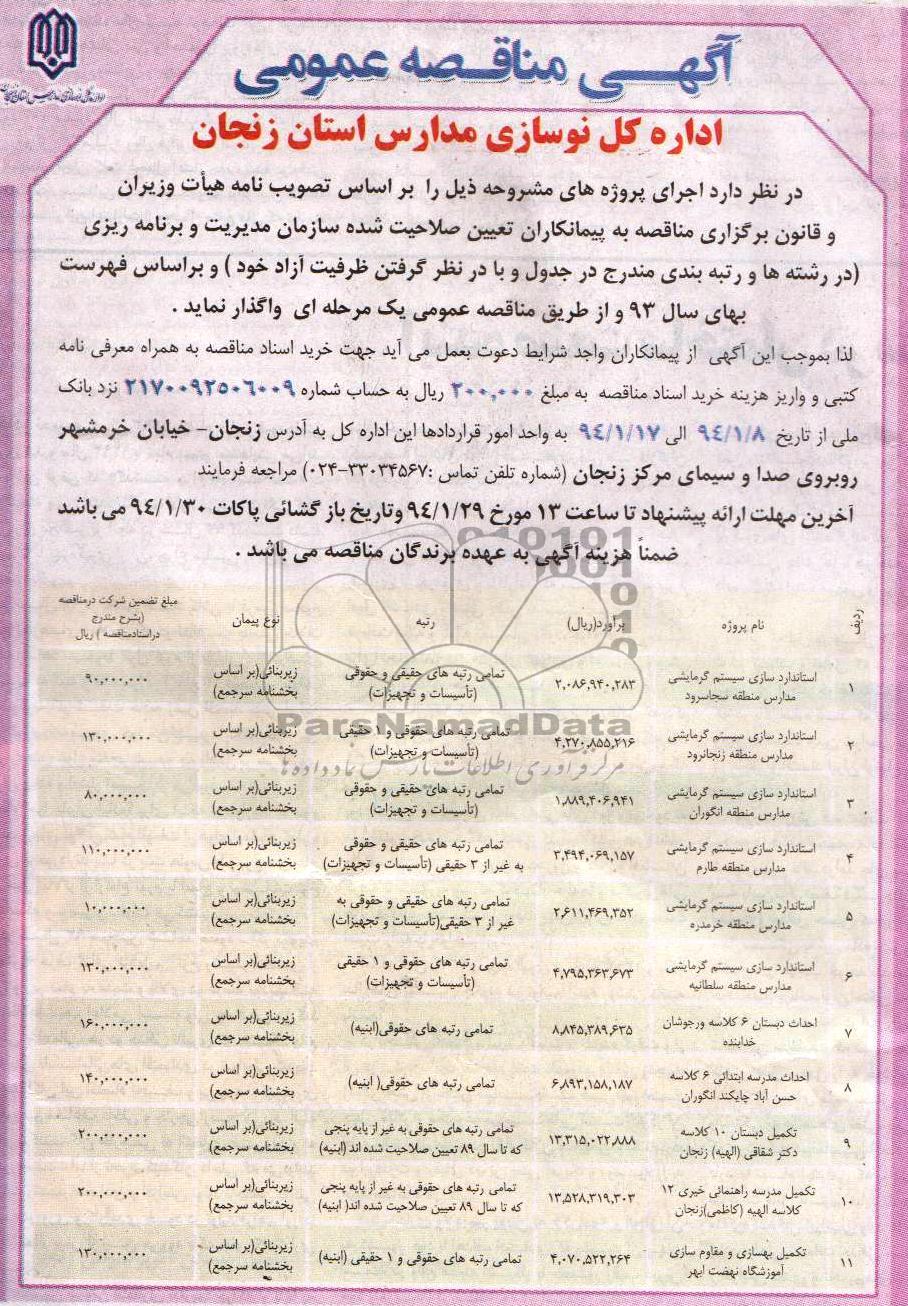 آگهی مناقصه عمومی
اداره کل نوسازی مدارس استان زنجان
در نظر دارد اجرای پروژه های مشروحه ذیل را بر اساس تصویب نامه هیأت وزیران
و قانون برگزاری مناقصه به پیمانکاران تعیین صلاحیت شده سازمان مدیریت و برنامه ریزی
(در رشته ها و رتبه بندی مندرج در جدول و با در نظر گرفتن ظرفیت آزاد خود ) و براساس فهرست
بهای سال ۹۳ و از طریق مناقصه عمومی یک مرحله ای واگذار نماید .
لذا بموجب این آگهی از پیمانکاران واجد شرایط دعوت بعمل می آید جهت خرید اسناد مناقصه به همراه معرفی نامه
کتبی و واریز هزینه خرید اسناد مناقصه به مبلغ ۲۰۰,۰۰۰ ریال به حساب شماره ۲۱۷۰۰۹۲۵۰۶۰۰۹ نزد بانک
ملی از تاریخ ۹۴/۱/۸ الی ۹۴/۱/۱۷ به واحد امور قراردادها این اداره کل به آدرس زنجان- خیابان خرمشهر
روبروی صدا و سیمای مرکز زنجان (شماره تلفن تماس :۳۳۰۳۴۵۶۷-۰۲۴) مراجعه فرمایند
آخرین مهلت ارائه پیشنهاد تا ساعت ۱۳ مورخ ۹۴/۱/۲۹ وتاریخ باز گشائی پاکات ۹۴/۱/۳۰ می باشد
ضمناً هزینه آگهی به عهده برندگان مناقصه می باشد .
ردیف نام پروژه برآورد(ریال) رتبه نوع پیمان مبلغ تضمین شرکت درمناقصه
(بشرح مندرج
دراسنادمناقصه ) ریال
۱ استاندارد سازی سیستم گرمایشی ۲,۰۸۶,۹۴۰,۲۸۳ تمامی رتبه های حقیقی و حقوقی زیربنائی(بر اساس ۹۰,۰۰۰,۰۰۰
مدارس منطقه سجاسرود (تأسیسات و تجهیزات) بخشنامه سرجمع)
۲ استاندارد سازی سیستم گرمایشی ۴,۲۷۰,۸۵۵,۲۱۶ تمامی رتبه های حقوقی و ۱ حقیقی زیربنائی(بر اساس ۱۳۰,۰۰۰,۰۰۰
مدارس منطقه زنجانرود (تأسیسات و تجهیزات) بخشنامه سرجمع)
ParsNamadData
مرکز فرآوری اطلاعات پارس نماد داده ها
۳ استاندارد سازی سیستم گرمایشی ۱,۸۸۹,۴۰۶,۹۴۱ تمامی رتبه های حقیقی و حقوقی زیربنائی(بر اساس ۸۰,۰۰۰,۰۰۰
مدارس منطقه انگوران (تأسیسات و تجهیزات) بخشنامه سرجمع)
۴ استاندارد سازی سیستم گرمایشی ۳,۴۹۴,۰۶۹,۱۵۷ تمامی رتبه های حقیقی و حقوقی زیربنائی(بر اساس ۱۱۰,۰۰۰,۰۰۰
مدارس منطقه طارم به غیر از ۳ حقیقی (تأسیسات و تجهیزات) بخشنامه سرجمع)
۵ استاندارد سازی سیستم گرمایشی ۲,۶۱۱,۴۶۹,۳۵۲ تمامی رتبه های حقیقی و حقوقی به زیربنائی(بر اساس ۱۰,۰۰۰,۰۰۰
مدارس منطقه خرمدره غیر از ۳ حقیقی(تأسیسات و تجهیزات) بخشنامه سرجمع)
۶ استاندارد سازی سیستم گرمایشی ۴,۷۹۵,۳۶۳,۶۷۳ تمامی رتبه های حقوقی و ۱ حقیقی زیربنائی(بر اساس ۱۳۰,۰۰۰,۰۰۰
مدارس منطقه سلطانیه (تأسیسات و تجهیزات) بخشنامه سرجمع)
۷ احداث دبستان ۶ کلاسه ورجوشان ۸,۸۴۵,۳۸۹,۶۳۵ تمامی رتبه های حقوقی(ابنیه) زیربنائی(بر اساس ۱۶۰,۰۰۰,۰۰۰
خدابنده بخشنامه سرجمع)
۸ احداث مدرسه ابتدائی ۶ کلاسه ۶,۸۹۳,۱۵۸,۱۸۷ تمامی رتبه های حقوقی( ابنیه) زیربنائی(بر اساس ۱۴۰,۰۰۰,۰۰۰
حسن آباد چایکند انگوران بخشنامه سرجمع)
۹ تکمیل دبستان ۱۰ کلاسه ۱۳,۳۱۵,۰۲۲,۸۸۸ تمامی رتبه های حقوقی به غیر از پایه پنجی زیربنائی(بر اساس ۲۰۰,۰۰۰,۰۰۰
دکتر شقاقی (الهیه) زنجان که تا سال ۸۹ تعیین صلاحیت شده اند (ابنیه) بخشنامه سرجمع)
۱۰ تکمیل مدرسه راهنمائی خیری ۱۲ ۱۳,۵۲۸,۳۱۹,۳۰۳ تمامی رتبه های حقوقی به غیر از پایه پنجی زیربنائی(بر اساس ۲۰۰,۰۰۰,۰۰۰
کلاسه الهیه (کاظمی)زنجان که تا سال ۸۹ تعیین صلاحیت شده اند( ابنیه) بخشنامه سرجمع)
۱۱ تکمیل بهسازی و مقاوم سازی ۴,۰۷۰,۵۲۲,۲۶۴ تمامی رتبه های حقوقی و ۱ حقیقی (ابنیه) زیربنائی(بر اساس ۱۳۰,۰۰۰,۰۰۰
آموزشگاه نهضت ابهر بخشنامه سرجمع)